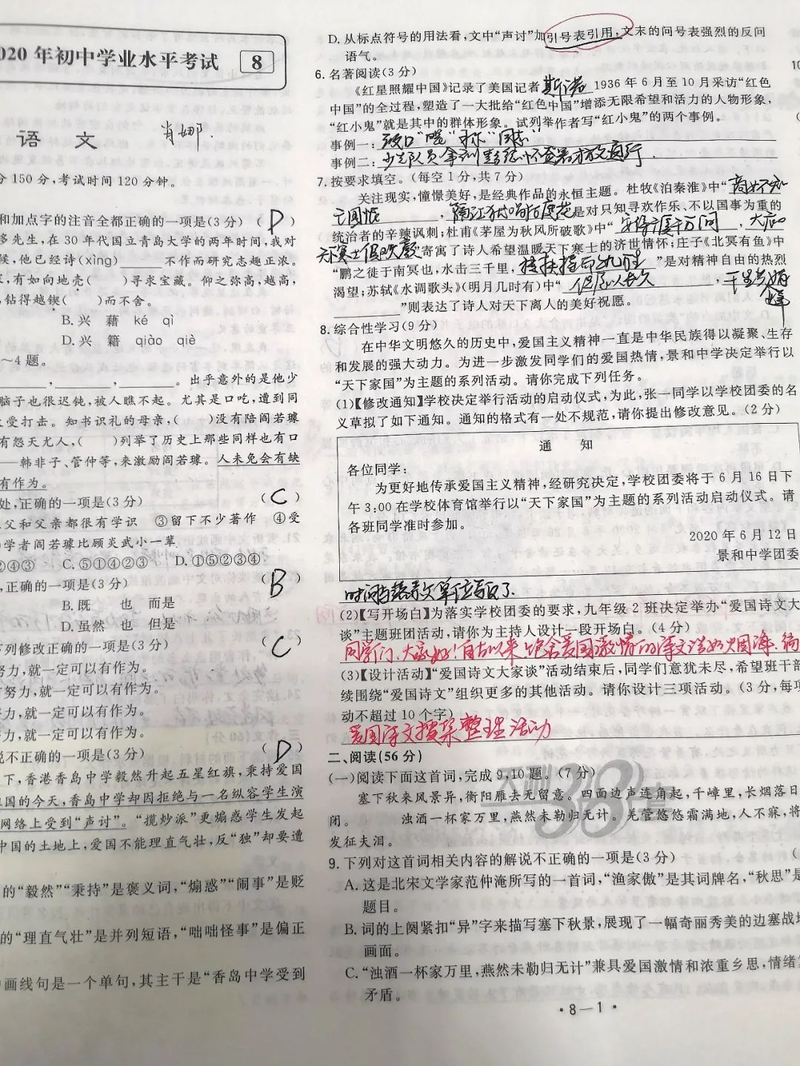 2020年初中学业水平考试 8
语文
分150分,考试时间120分钟。
和加点字的注音全都正确的一项是(3分) ( D )
多先生,在30年代国立青岛大学的两年时间,我对
候,他已经诗(xìng)   不作而研究志趣正浓。
,有如向地壳(   )寻求宝藏。仰之弥高,越高,
,钻得越锲(   )而不舍。
B.兴 藉 ké qì
D.兴 籍 qiào qiè
～4题。
, , , 。出乎意外的是他少
脑子也很迟钝,被人瞧不起。尤其是口吃,遭到同
受打击。知书识礼的母亲,(   )没有陪阎若璩
有怨天尤人,(   )列举了历史上那些同样也有口
——韩非子、管仲等,来激励阎若璩。人未免会有缺
有作为。
处,正确的一项是(3分) ( C )
父和父亲都很有学识 ③留下不少著作 ④受
学者阎若璩比顾炎武小一辈
②④③ C.①④②③⑤ D.①⑤②③④
,正确的一项是(3分) ( B )
B.既 也 而是
D.虽然 也 但是
下列修改正确的一项是(3分) ( C )
努力,就一定可以有作为。
努力,就一定可以有作为。
努力,就一定可以有作为。
力,就一定可以有作为。
说不正确的一项是(3分) ( D )
下,香港香岛中学毅然升起五星红旗,秉持爱国
国的今天,香岛中学却因拒绝与一名纵容学生演
网络上受到“声讨”。“揽炒派”更煽惑学生发起
中国的土地上,爱国不能理直气壮,反“独”却要遭
的“毅然”“秉持”是褒义词,“煽惑”“闹事”是贬
的“理直气壮”是并列短语,“咄咄怪事”是偏正
中画线句是一个单句,其主干是“香岛中学受到
D.从标点符号的用法看,文中“声讨”加引号表引用,文末的问号表强烈的反问
语气。
6.名著阅读(3分)
《红星照耀中国》记录了美国记者斯诺1936年6月至10月采访“红色
中国”的全过程,塑造了一大批给“红色中国”增添无限希望和活力的人物形象,
“红小鬼”就是其中的群体形象。试列举作者写“红小鬼”的两个事例。
事例一:
事例二:少先队员
7.按要求填空。(每空1分,共7分)
关注现实,憧憬美好,是经典作品的永恒主题。杜牧《泊秦淮》中“商女不知
亡国恨,隔江犹唱后庭花”是对只知寻欢作乐、不以国事为重的
统治者的辛辣讽刺;杜甫《茅屋为秋风所破歌》中“安得广厦千万间,大庇
天下寒士俱欢颜”寄寓了诗人希望温暖天下寒士的济世情怀;庄子《北冥有鱼》中
“鹏之徙于南冥也,水击三千里,”是对精神自由的热烈
渴望;苏轼《水调歌头》(明月几时有)中“但愿人长久,千里共婵
娟”则表达了诗人对天下离人的美好祝愿。
8.综合性学习(9分)
在中华文明悠久的历史中,爱国主义精神一直是中华民族得以凝聚、生存
和发展的强大动力。为进一步激发同学们的爱国热情,景和中学决定举行以
“天下家国”为主题的系列活动。请你完成下列任务。
(1)【修改通知】学校决定举行活动的启动仪式,为此,张一同学以学校团委的名
义草拟了如下通知。通知的格式有一处不规范,请你提出修改意见。(2分)
通 知
各位同学:
为更好地传承爱国主义精神,经研究决定,学校团委将于6月16日下
午3:00在学校体育馆举行以“天下家国”为主题的系列活动启动仪式。请
各班同学准时参加。
2020年6月12日
景和中学团委
(2)【写开场白】为落实学校团委的要求,九年级2班决定举办“爱国诗文大家
谈”主题班团活动,请你为主持人设计一段开场白。(4分)
同学们,大家好!自古以来
(3)【设计活动】“爱国诗文大家谈”活动结束后,同学们意犹未尽,希望班干部
续围绕“爱国诗文”组织更多的其他活动。请你设计三项活动。(3分,每项
动不超过10个字)
爱国诗文搜集整理活动
二、阅读(56分)
(一)阅读下面这首词,完成9、10题。(7分)
塞下秋来风景异,衡阳雁去无留意。四面边声连角起,千嶂里,长烟落日
闭。 浊酒一杯家万里,燕然未勒归无计。羌管悠悠霜满地,人不寐,将
发征夫泪。
9.下列对这首词相关内容的解说不正确的一项是(3分)
A.这是北宋文学家范仲淹所写的一首词,“渔家傲”是其词牌名,“秋思”是
题目。
B.词的上阕紧扣“异”字来描写塞下秋景,展现了一幅奇丽秀美的边塞战
画面。
C.“浊酒一杯家万里,燕然未勒归无计”兼具爱国激情和浓重乡思,情绪
矛盾。
·8—1·